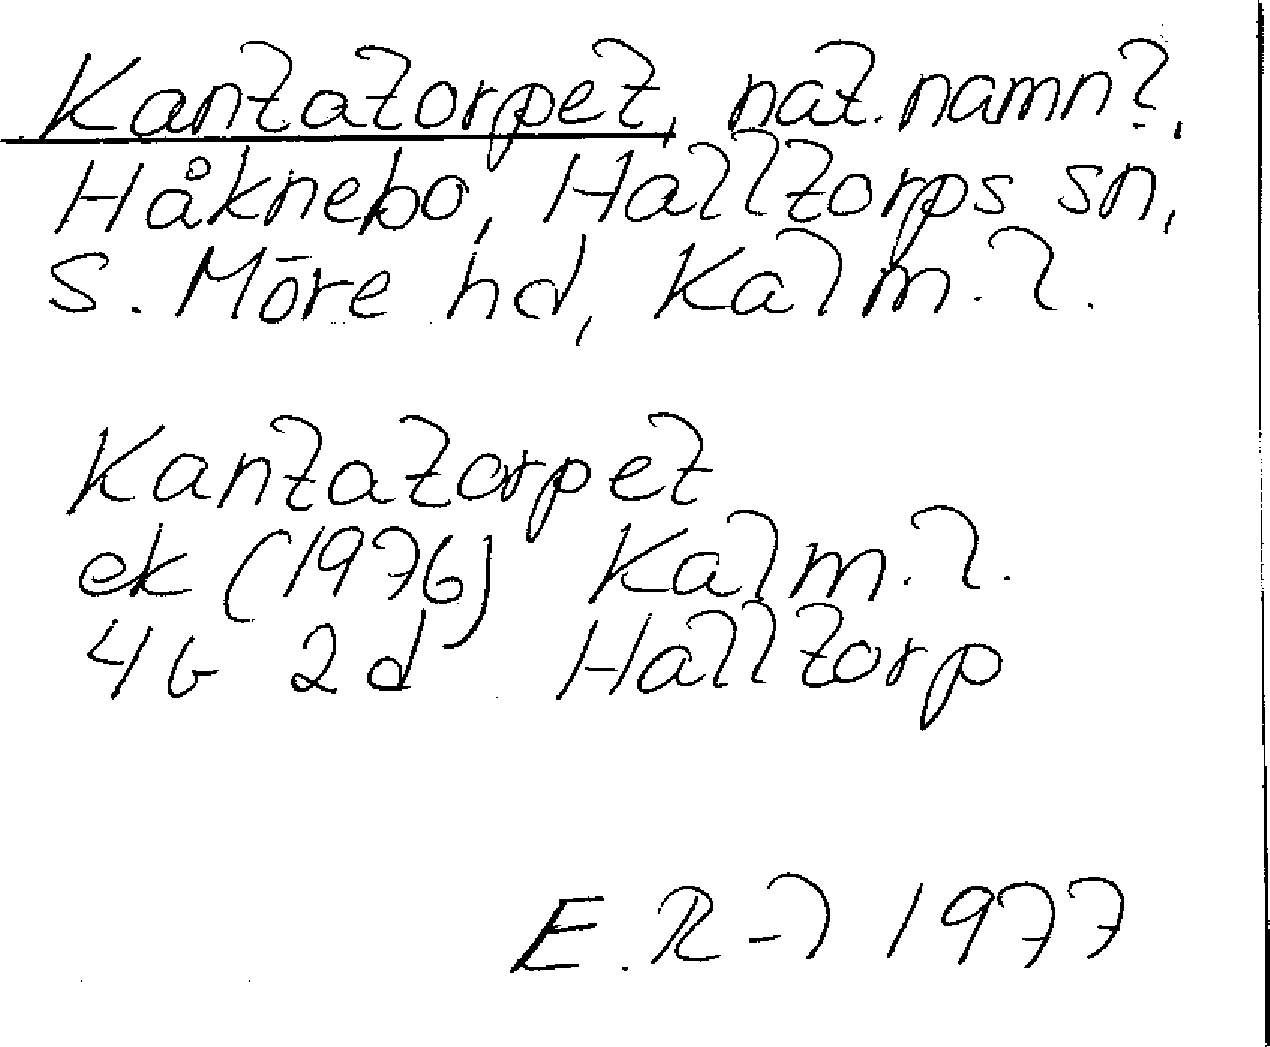 Kantatorpet, nat. namn?,
Håknebo, Halltorps sn,
S. Möre hd, Kalm. l.
Kantatorpet
ek (1976) Kalm. l.
4G 2d Halltorp
E. R-l 1977